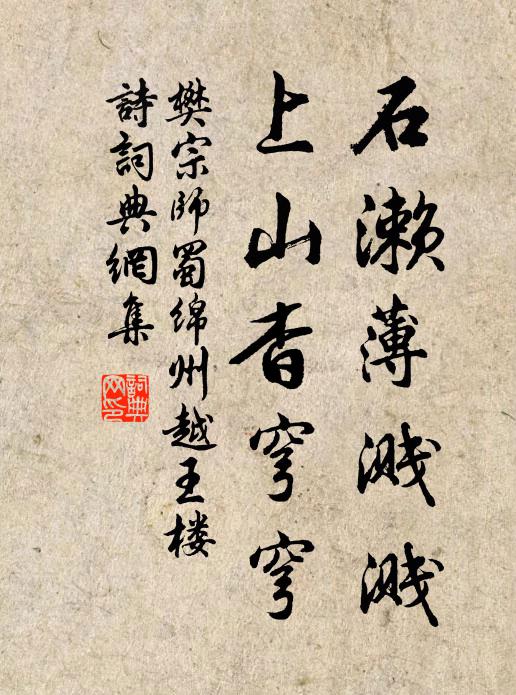 石濑薄溅溅
上山杳穹穹
樊宗师蜀绵州越王楼
詩詞典網集
詞典网印